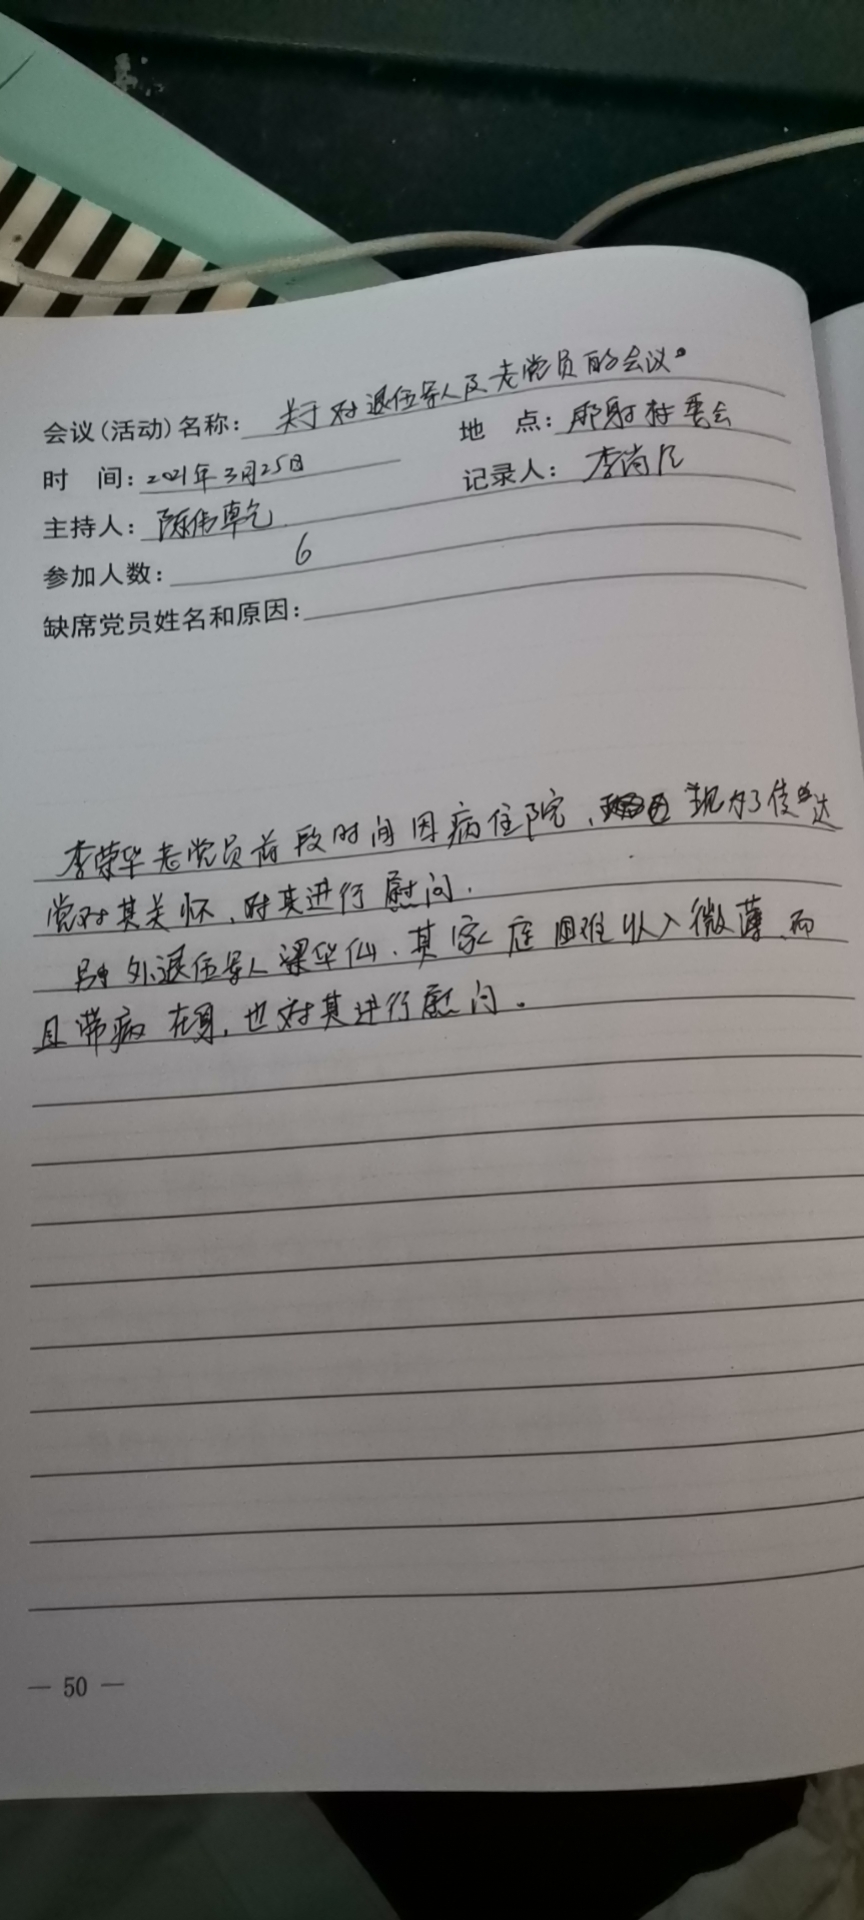 会议(活动)名称: 关于对退伍军人及老党员的会议。
时 间: 2021年3月25日 地 点: 村委会
主持人: 陈伟乾 记录人: 李尚
参加人数: 6
缺席党员姓名和原因:
李荣华老党员前段时间因病住院、现为了传达
党对其关怀、对其进行慰问.
另外退伍军人梁华仙、其家庭困难收入微薄、而
且带病在身,也对其进行慰问。
— 50 —